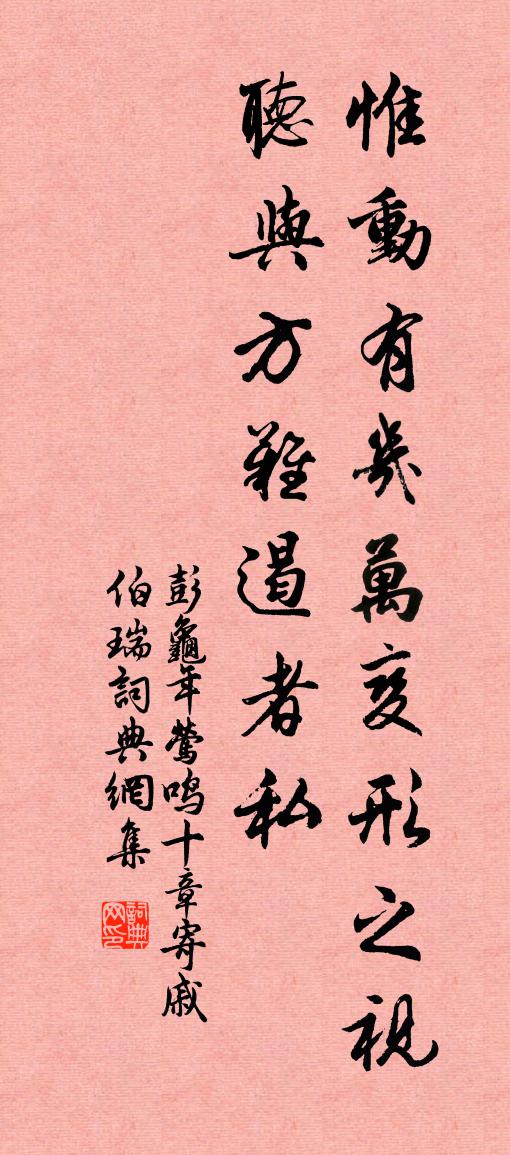 惟動有幾萬變形之視
聽與方難遏者私
彭龜年鶯鳴十章寄戚
伯瑞詞典網集
詞典网印